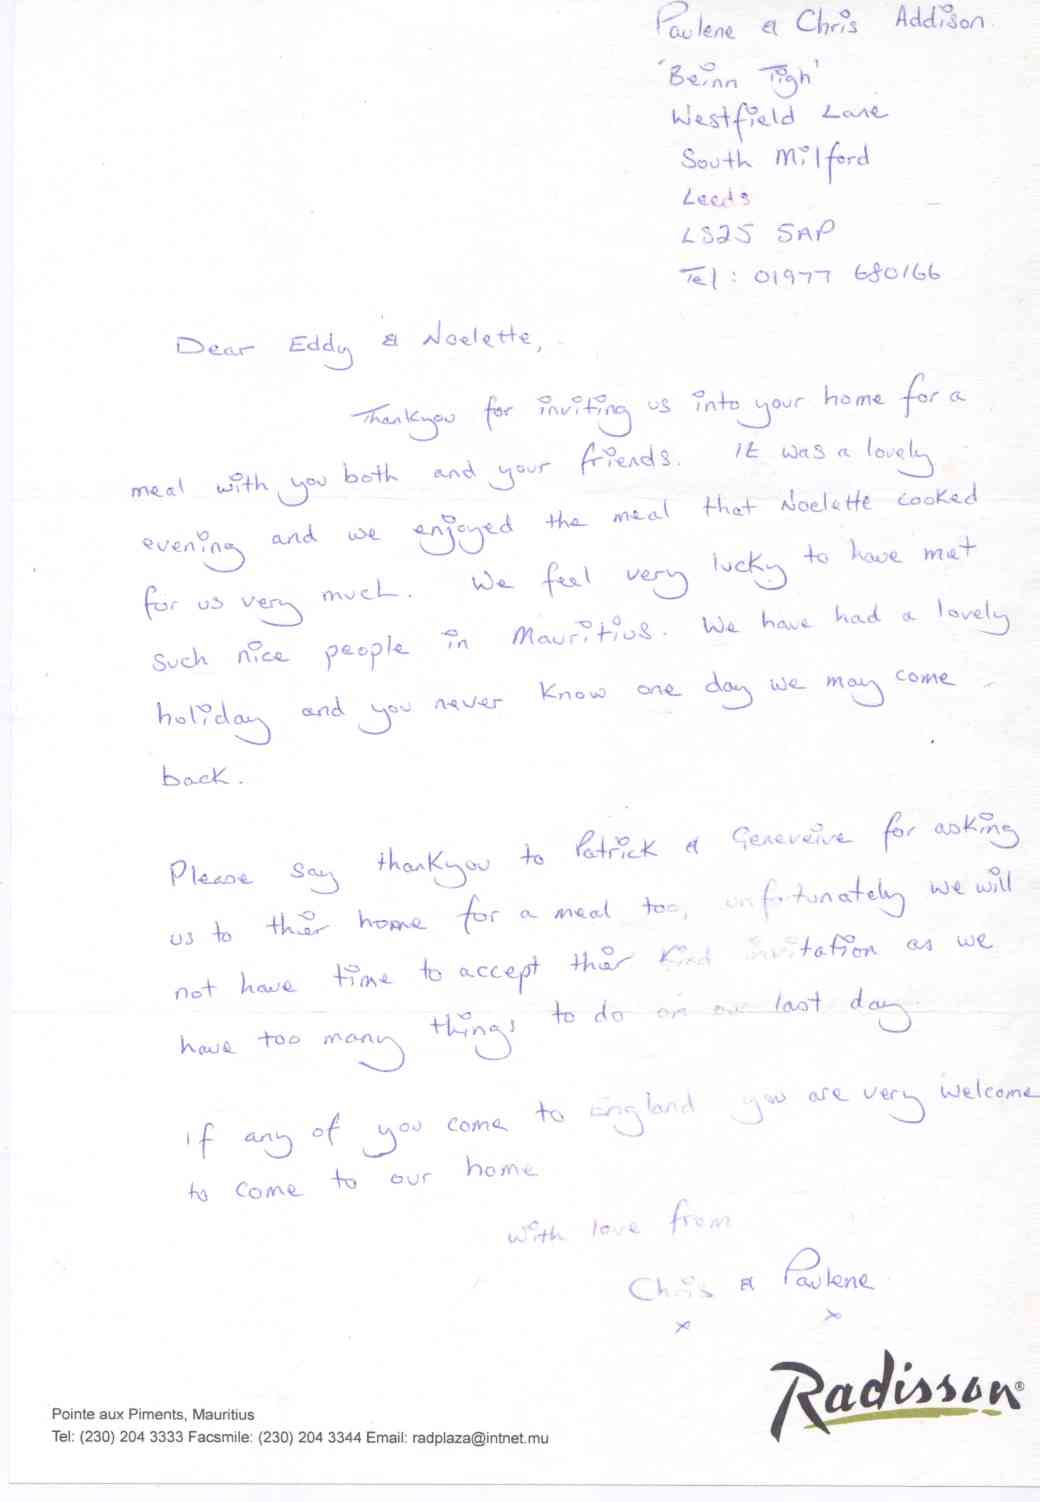 Paulene & Chris Addison
'Beinn Tigh'
Westfield Lane
South Milford
Leeds
LS25 5AP
Tel: 01977 680166
Dear Eddy & Noelette,
Thankyou for inviting us into your home for a
meal with you both and your friends. It was a lovely
evening and we enjoyed the meal that Noelette cooked
for us very much. We feel very lucky to have met
such nice people in Mauritius. We have had a lovely
holiday and you never know one day we may come
back.
Please say thankyou to Patrick & Geneveive for asking
us to thier home for a meal too, unfortunately we will
not have time to accept thier kind invitation as we
have too many things to do on our last day.
If any of you come to England you are very welcome
to come to our home
With love from
Chris & Paulene
x x
Radisson®
Pointe aux Piments, Mauritius
Tel: (230) 204 3333 Facsmile: (230) 204 3344 Email: radplaza@intnet.mu